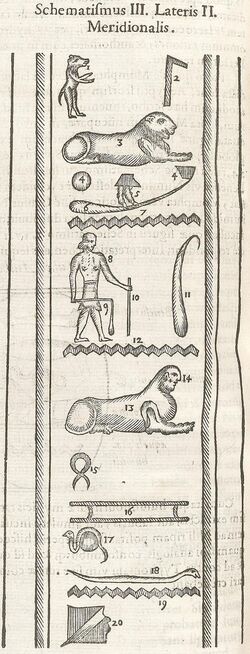 Schematiſmus III. Lateris II.
Meridionalis.
2
3
4
4
5
6
7
8
9
10
11
12
14
13
15
16
17
18
19
20